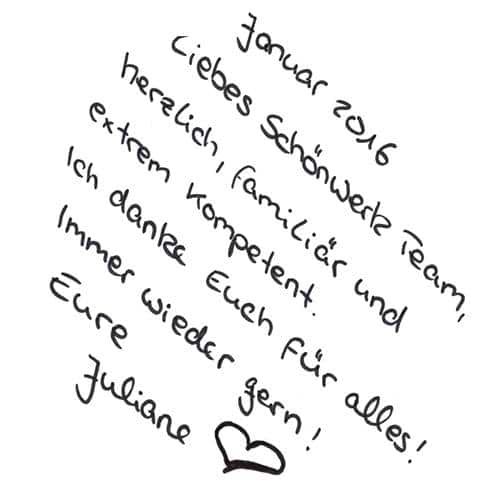 Januar 2016
Liebes Schönwerk Team,
herzlich, familiär und
extrem kompetent.
Ich danke Euch für alles!
Immer wieder gern!
Eure
Juliane